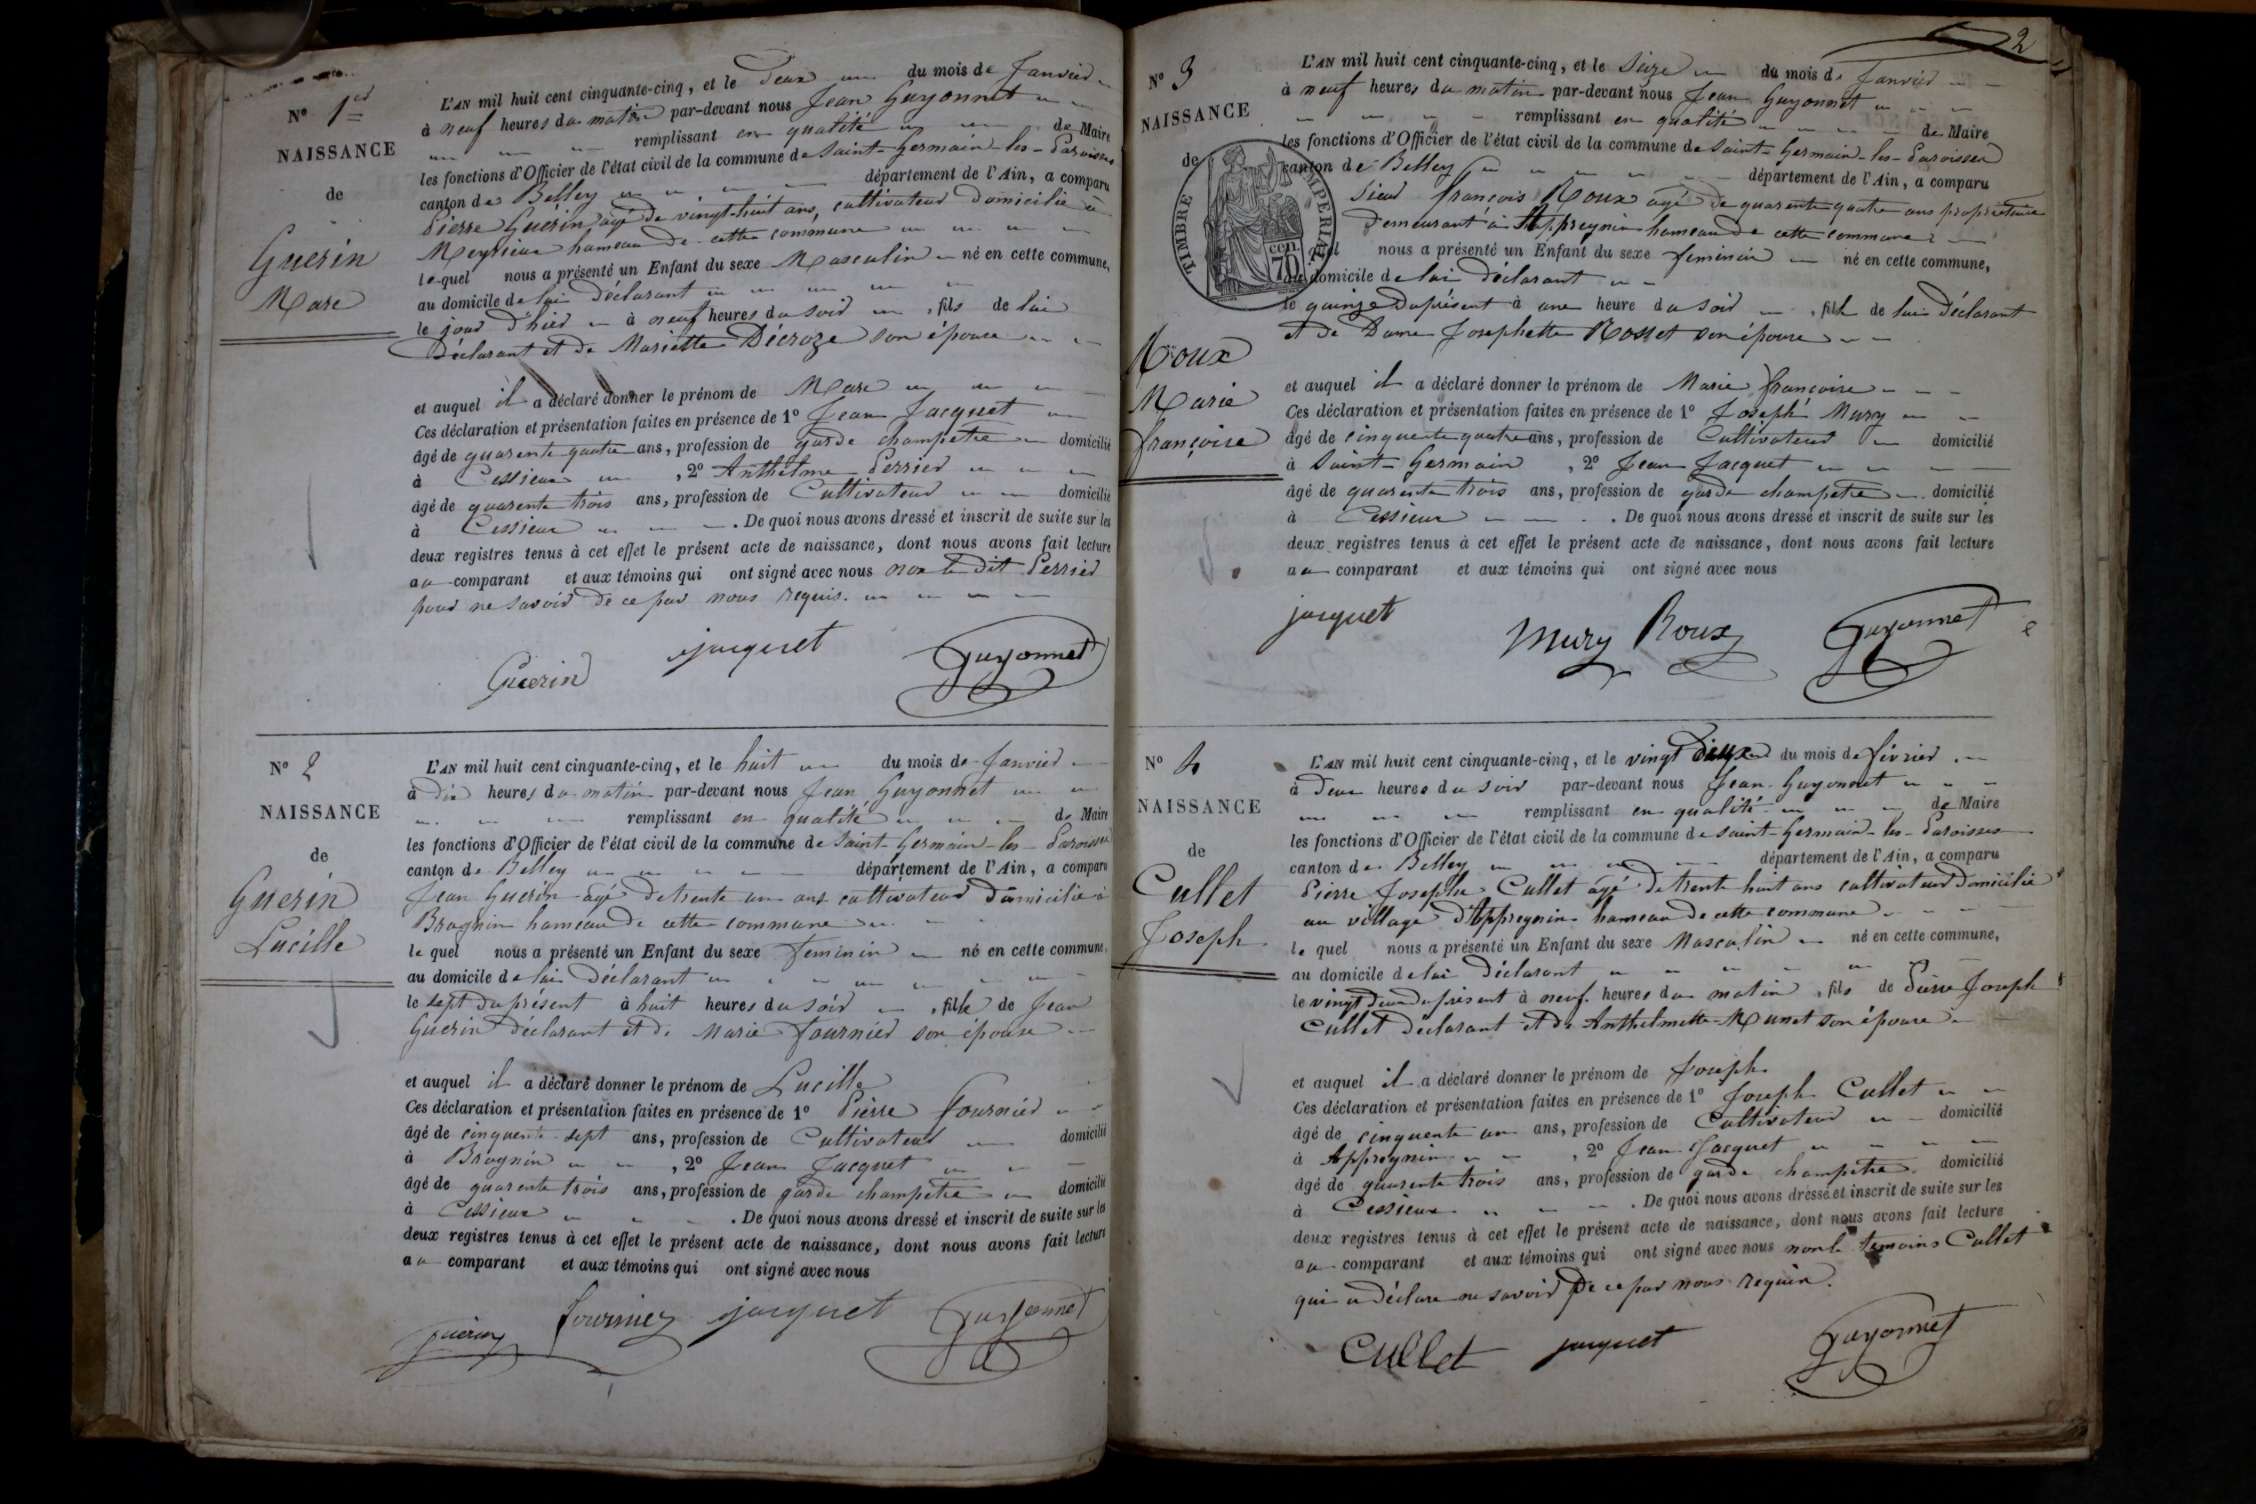 N° 1er
NAISSANCE
de
Guerin
Marc
L'AN mil huit cent cinquante-cinq, et le Deux du mois de Janvier
à neuf heures du matin par-devant nous Jean Guyonnet
remplissant en qualité de Maire
les fonctions d'Officier de l'état civil de la commune de Saint-Germain-les-Paroisses
canton de Belley département de l'Ain, a comparu
Pierre Guerin âgé de vingt-huit ans, cultivateur domicilié à
Meyrieu hameau de cette commune
lequel nous a présenté un Enfant du sexe Masculin né en cette commune,
au domicile de lui Déclarant
le jour d'hier à neuf heures du soir, fils de lui
Déclarant et de Mariette Décroze son épouse
et auquel il a déclaré donner le prénom de Marc
Ces déclaration et présentation faites en présence de 1° Jean Jacquet
âgé de quarente quatre ans, profession de garde champetre domicilié
à Cessieux, 2° Anthelme Perrier
âgé de quarente trois ans, profession de Cultivateur domicilié
à Cessieux. De quoi nous avons dressé et inscrit de suite sur les
deux registres tenus à cet effet le présent acte de naissance, dont nous avons fait lecture
au comparant et aux témoins qui ont signé avec nous non le dit Perrier
pour ne savoir de ce par nous requis.
Guerin jacquet Guyonnet
N° 2
NAISSANCE
de
Guerin
Lucille
L'AN mil huit cent cinquante-cinq, et le huit du mois de Janvier
à dix heures du matin par-devant nous Jean Guyonnet
remplissant en qualité de Maire
les fonctions d'Officier de l'état civil de la commune de Saint-Germain-les-Paroisses
canton de Belley département de l'Ain, a comparu
Jean Guerin âgé de trente un ans cultivateur domicilié à
Brognin hameau de cette commune
le quel nous a présenté un Enfant du sexe feminin né en cette commune,
au domicile de lui Déclarant
le sept du présent à huit heures du soir, fille de Jean
Guerin déclarant et de Marie fournier son épouse
et auquel il a déclaré donner le prénom de Lucille
Ces déclaration et présentation faites en présence de 1° Pierre fournier
âgé de cinquente-sept ans, profession de Cultivateur domicilié
à Brognin, 2° Jean Jacquet
âgé de quarente trois ans, profession de garde champetre domicilié
à Cessieux. De quoi nous avons dressé et inscrit de suite sur les
deux registres tenus à cet effet le présent acte de naissance, dont nous avons fait lecture
au comparant et aux témoins qui ont signé avec nous
guerin fournier jacquet Guyonnet
2
N° 3
NAISSANCE
de
TIMBRE IMPERIAL
70 cen.
Roux
Marie
françoise
L'AN mil huit cent cinquante-cinq, et le Seize du mois de Janvier
à neuf heures du matin par-devant nous Jean Guyonnet
remplissant en qualité de Maire
les fonctions d'Officier de l'état civil de la commune de Saint-Germain-les-Paroisses
canton de Belley département de l'Ain, a comparu
Sieur françois Roux âgé de quarente quatre ans propriétaire
Demeurant à Appregnin hameau de cette commune
quel nous a présenté un Enfant du sexe feminin né en cette commune,
au domicile de lui déclarant
le quinze du présent à une heure du soir, fille de lui Déclarant
et de Dame Josephette Rosset son épouse
et auquel il a déclaré donner le prénom de Marie françoise
Ces déclaration et présentation faites en présence de 1° Joseph Mury
âgé de cinquente quatre ans, profession de Cultivateur domicilié
à Saint-Germain, 2° Jean Jacquet
âgé de quarente trois ans, profession de garde champetre domicilié
à Cessieux. De quoi nous avons dressé et inscrit de suite sur les
deux registres tenus à cet effet le présent acte de naissance, dont nous avons fait lecture
au comparant et aux témoins qui ont signé avec nous
jacquet Mury Roux Guyonnet
N° 4
NAISSANCE
de
Cullet
Joseph
L'AN mil huit cent cinquante-cinq, et le vingt deux du mois de février
à Deux heures du soir par-devant nous Jean Guyonnet
remplissant en qualité de Maire
les fonctions d'Officier de l'état civil de la commune de Saint-Germain-les-Paroisses
canton de Belley département de l'Ain, a comparu
Pierre Joseph Cullet âgé de trente huit ans cultivateur domicilié
au village d'Appregnin hameau de cette commune
le quel nous a présenté un Enfant du sexe Masculin né en cette commune,
au domicile de lui déclarant
le vingt deux du présent à neuf heures du matin, fils de Pierre Joseph
Cullet déclarant et de Anthelmette Munet son épouse
et auquel il a déclaré donner le prénom de Joseph
Ces déclaration et présentation faites en présence de 1° Joseph Cullet
âgé de cinquente un ans, profession de Cultivateur domicilié
à Appregnin, 2° Jean Jacquet
âgé de quarente trois ans, profession de garde champetre domicilié
à Cessieux. De quoi nous avons dressé et inscrit de suite sur les
deux registres tenus à cet effet le présent acte de naissance, dont nous avons fait lecture
au comparant et aux témoins qui ont signé avec nous non le temoins Cullet
qui a déclaré ne savoir De ce par nous requis.
Cullet jacquet Guyonnet